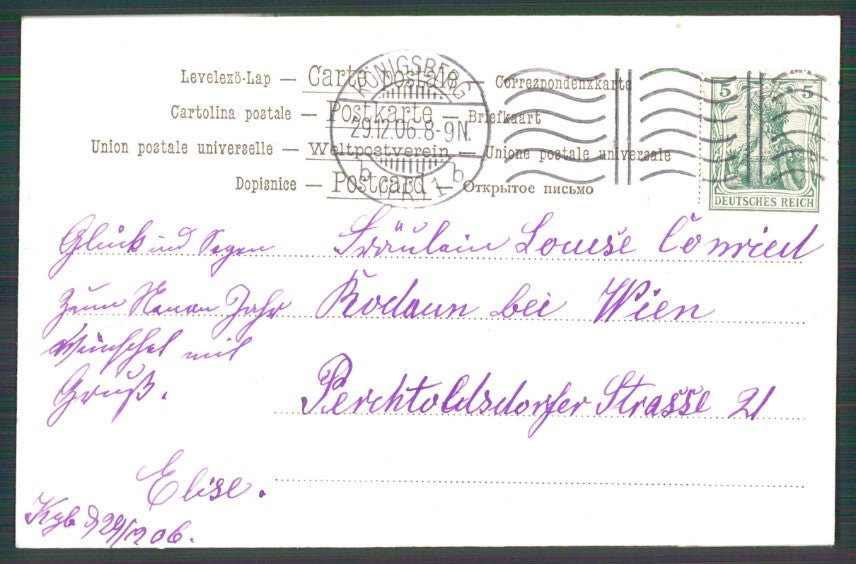 Levelező-Lap — Carte postale — Correspondenzkarte
Cartolina postale — Postkarte — Briefkaart
Union postale universelle — Weltpostverein — Unione postale universale
Dopisnice — Postcard — Открытое письмо
KÖNIGSBERG
29.12.06.8-9N.
b (PR.) 1 b
5 5
DEUTSCHES REICH
Glück und Segen
zum Neuen Jahr
wünschet mit
Gruß.
Elise.
Kgb d 29/12 06.
Fräulein Louise Conried
Rodaun bei Wien
Perchtoldsdorfer Strasse 21